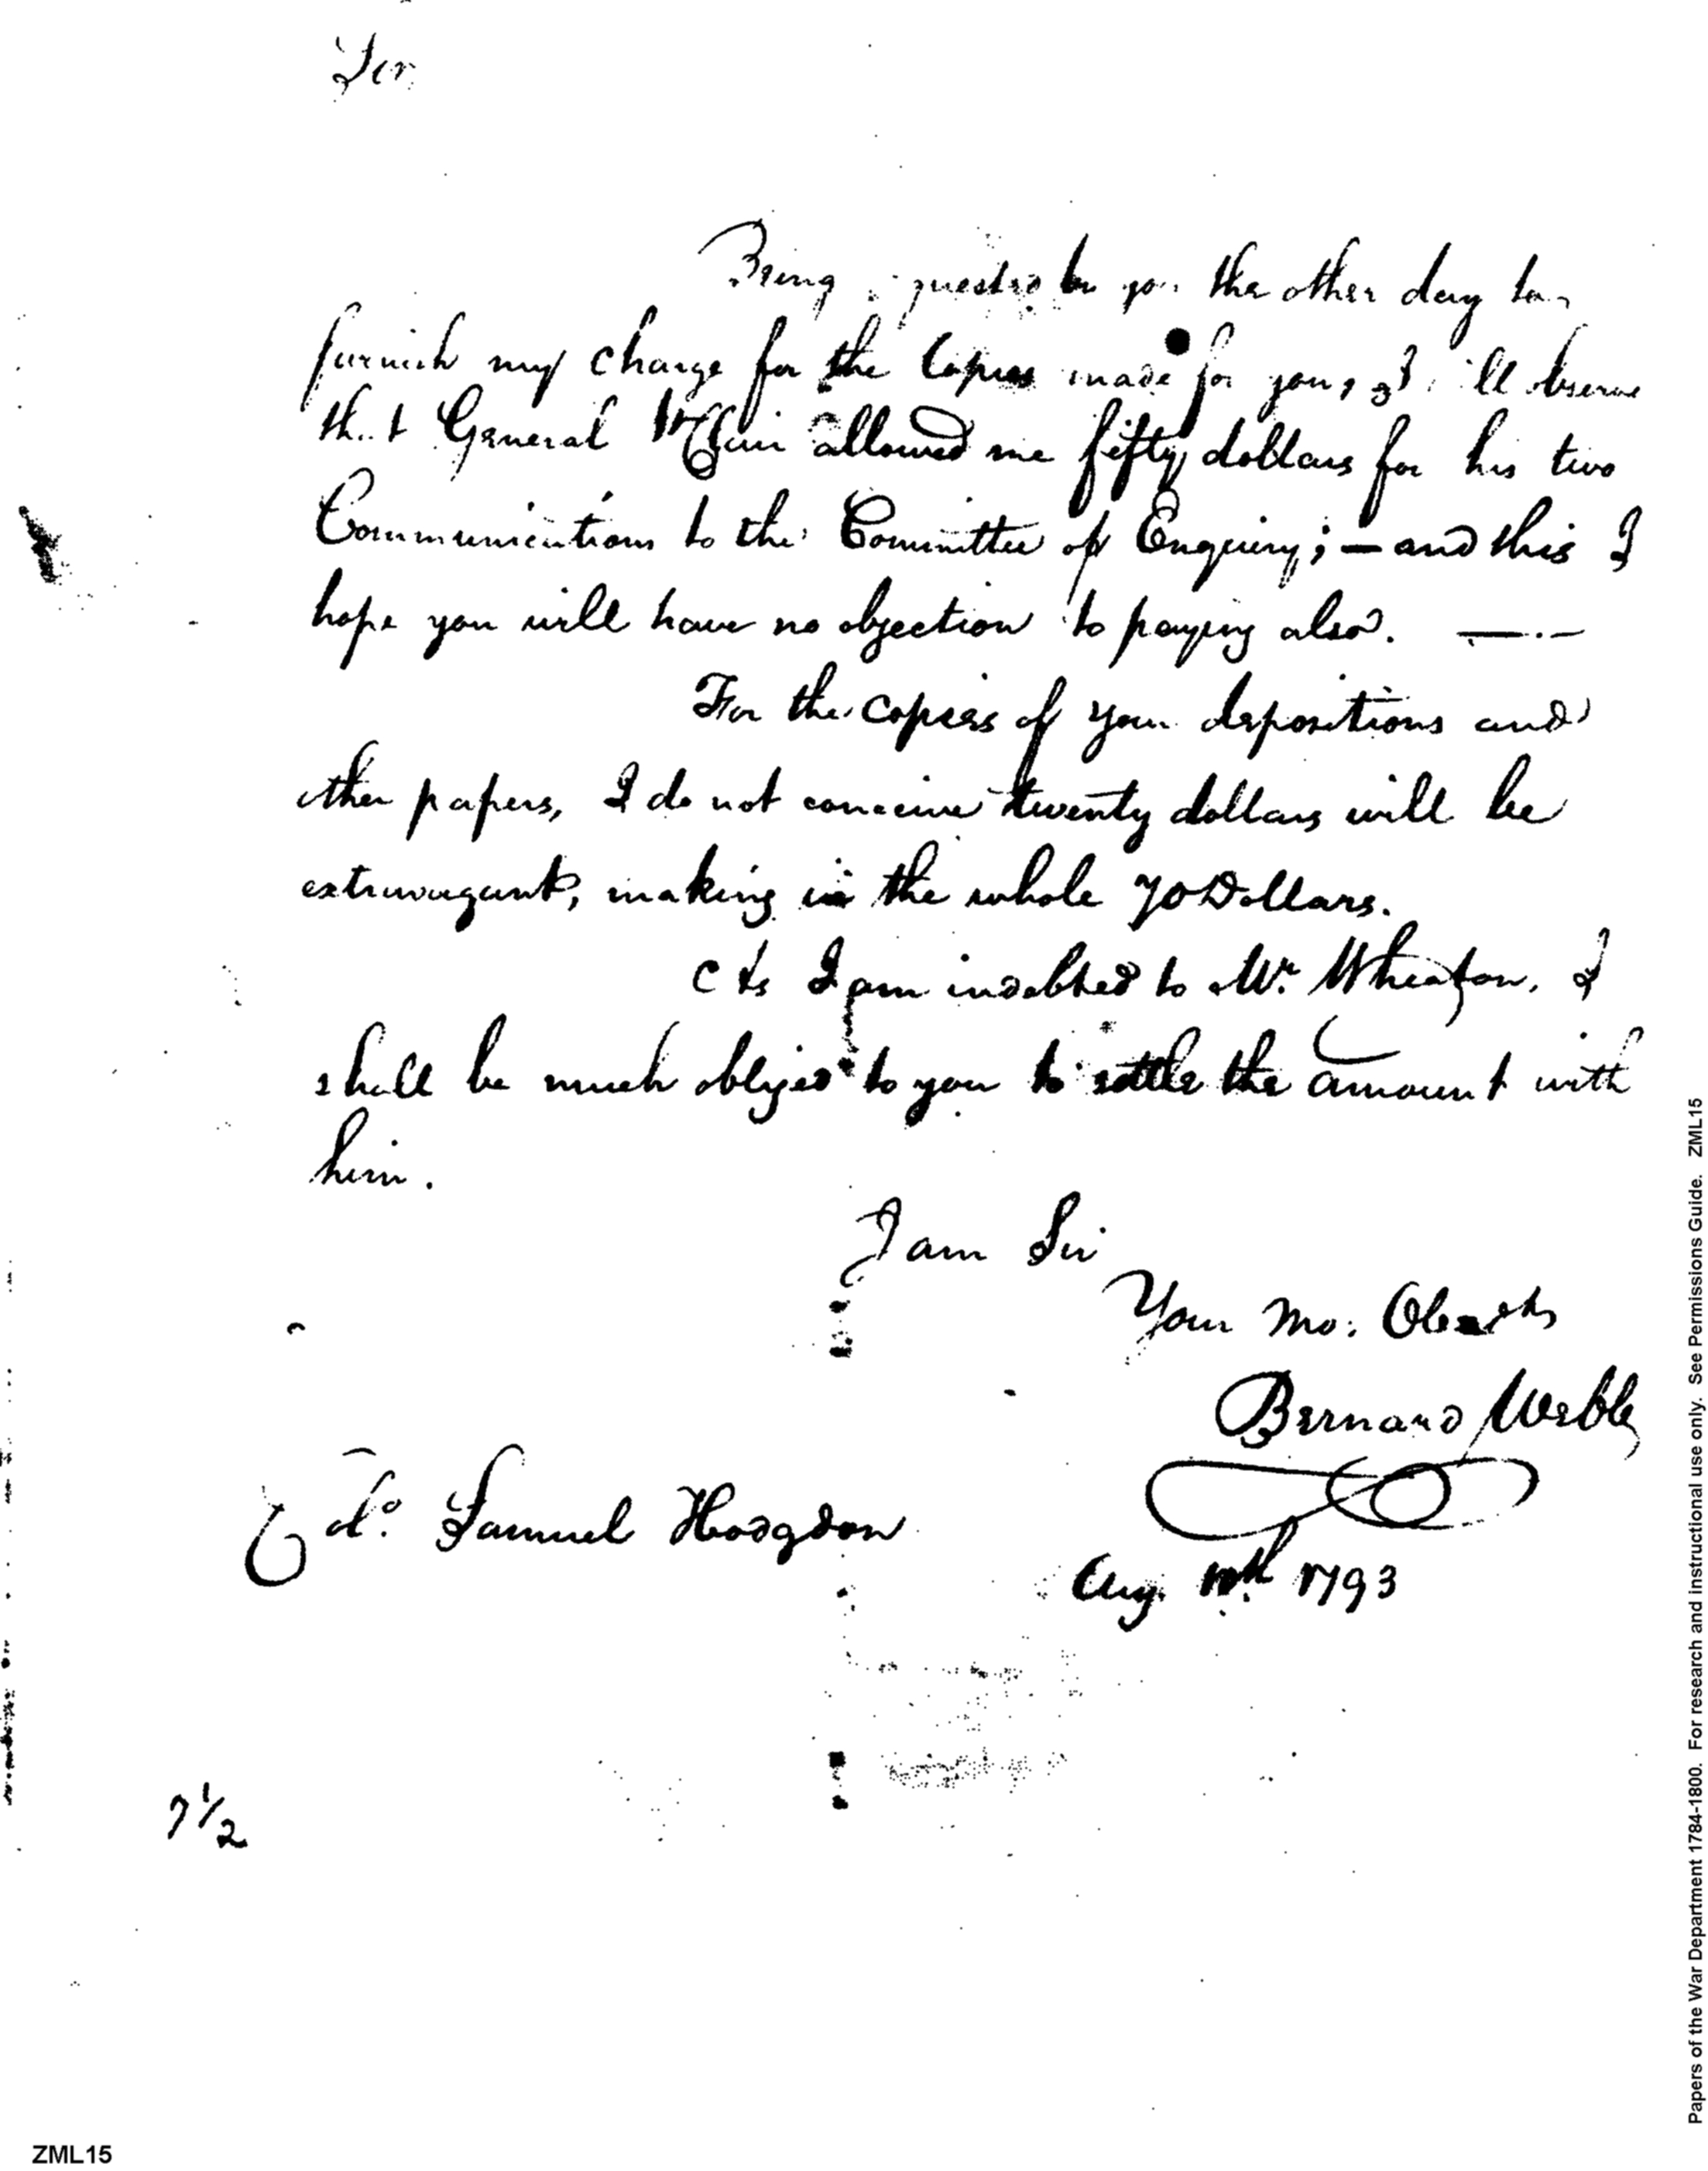 Sir
Being requested by you the other day to
furnish my charge for the Copies made for you, I will observe
that General St Clair allowed me fifty dollars for his two
Communications to the Committee of Enquiry; — and this I
hope you will have no objection to paying also. —
For the copies of your depositions and
other papers, I do not conceive twenty dollars will be
extravagant, making in the whole 70 Dollars.
As I am indebted to Mr. Wheaton, I
shall be much obliged to you to settle the amount with
him.
I am Sir
Your Mo: Obedt
Bernard Webb
Colo. Samuel Hodgdon
Aug. 1793
7 1/2
ZML15
Papers of the War Department 1784-1800. For research and instructional use only. See Permissions Guide. ZML15